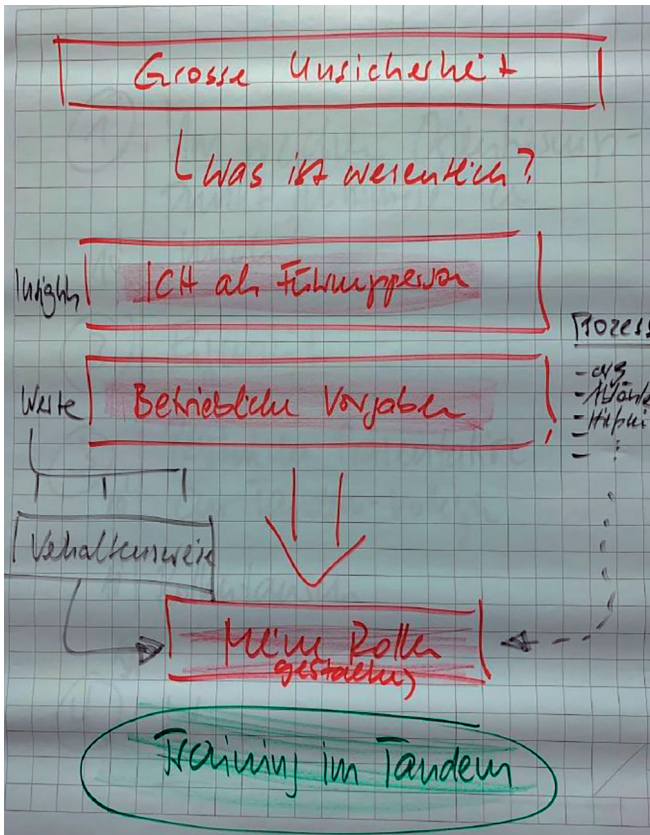 Grosse Unsicherheit
Was ist wesentlich?
Insights
ICH als Führungsperson
Prozess
Werte
Betriebliche Vorgaben
- 
- 
- 
Verhaltensweise
Meine Rollen
gestaltung
Training im Tandem